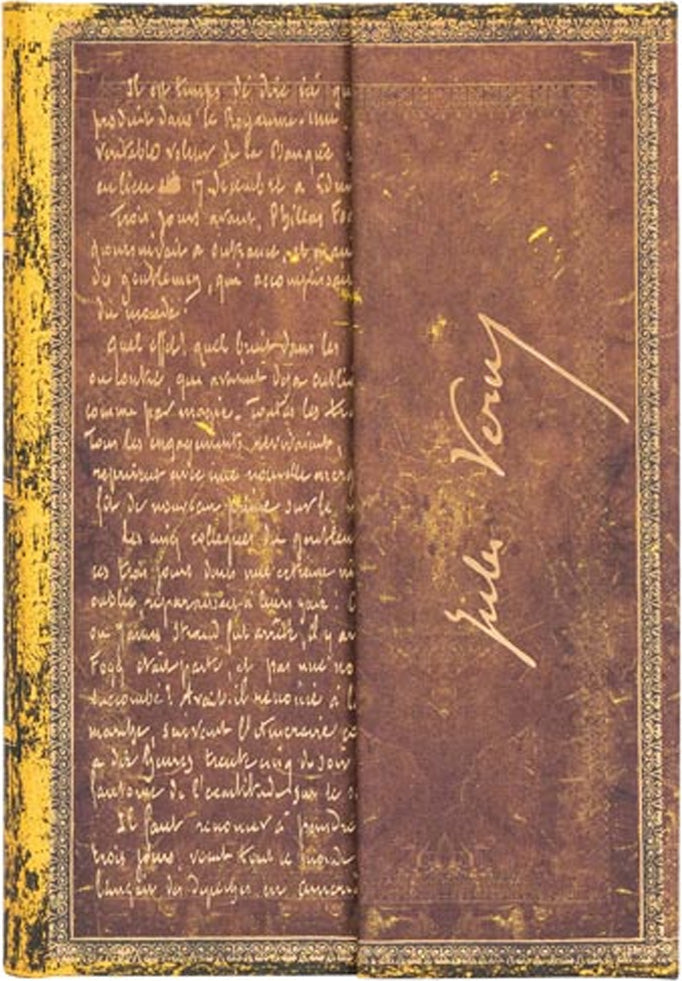 Il est temps de dire ici qu
produit dans le Royaume-Uni
véritable voleur de la Banque
au lieu 17 Décembre à Edim
Trois jours avant, Phileas Fo
poursuivait à outrance, et
des gentlemen, qui accomplissait
du monde.
Quel effet! quel bruit dans les
ou contre, qui avaient déjà oublié
comme par magie. Toutes les tra
Tous les engagements revivaient,
reprirent avec une nouvelle
fit de nouveau prime sur le
Les cinq collègues du gentleman
ces trois jours dans une
oublié reparaissait à leurs yeux!
où James Strand fut arrêté, il y a
Fogg était parti, et pas une no
succombé? Avait-il renoncé à l
marche, suivant l'itinéraire
à dix heures trente cinq du soir
fantôme de l'exactitude, sur le s
Il faut renoncer à peindre
trois jours vécut tout ce monde
lança des dépêches en
Jules Verne